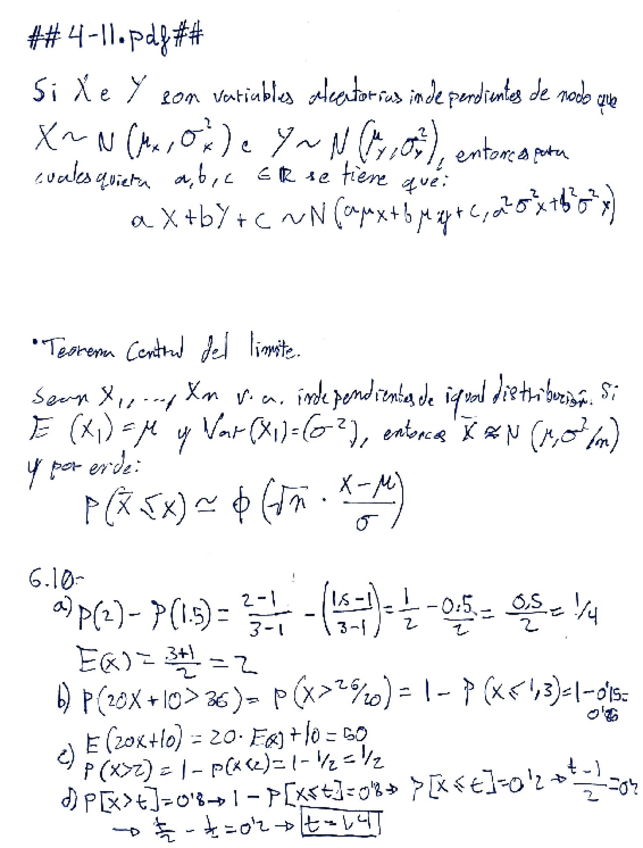 ## 4-11.pdf ##
Si X e Y son variables aleatorias independientes de modo que
X ~ N (μx, σ²x) e Y ~ N (μy, σ²y), entonces para
cualesquiera a, b, c ∈ ℝ se tiene que:
aX + bY + c ~ N (aμx + bμy + c, a²σ²x + b²σ²y)
• Teorema Central del limite.
Sean X₁, ..., Xn v. a. independientes de igual distribución. Si
E (X₁) = μ y Var (X₁) = (σ²), entonces X̄ ≈ N (μ, σ²/n)
y por ende:
P(X̄ ≤ x) ≃ ϕ (√n · x-μ/σ)
6.10-
a) P(2) - P(1.5) = 2-1/3-1 - (1.5-1/3-1) = 1/2 - 0.5/2 = 0,5/2 = 1/4
E(x) = 3+1/2 = 2
b) P(20X+10>36) = P(X>26/20) = 1 - P(X≤1,3) = 1-0'15=
0'85
E(20X+10) = 20·E(x)+10 = 50
c) P(X>2) = 1 - P(X≤2) = 1-1/2 = 1/2
d) P[X>t]=0'8 → 1 - P[X≤t]=0'8 → P[X≤t]=0'2 → t-1/2 = 0'2
→ t/2 - 1/2 = 0'2 → t=1,4